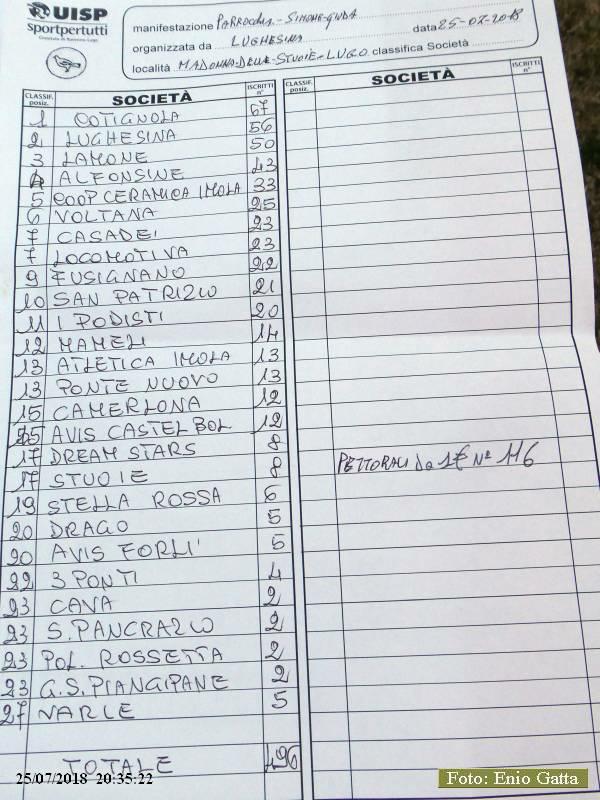 UISP
Sportpertutti
manifestazione PARROCCHIA-SIMONE-GIUDA
organizzata da LUGHESINA data 25-07-2018
località MADONNA-DELLE-STUOIE-LUGO classifica Società
CLASSIF. posiz. SOCIETÀ ISCRITTI n° CLASSIF. posiz. SOCIETÀ ISCRITTI n°
1 COTIGNOLA 67
2 LUGHESINA 56
3 LAMONE 50
4 ALFONSINE 43
5 COOP CERAMICA IMOLA 33
6 VOLTANA 25
7 CASADEI 23
7 LOCOMOTIVA 23
9 FUSIGNANO 22
10 SAN PATRIZIO 21
11 I PODISTI 20
12 MAMELI 14
13 ATLETICA IMOLA 13
13 PONTE NUOVO 13
15 CAMERLONA 12
15 AVIS CASTEL BOL 12
17 DREAM STARS 8
17 STUOIE 8
PETTORALI DA 1€ Nº 116
19 STELLA ROSSA 6
20 DRAGO 5
20 AVIS FORLI' 5
22 3 PONTI 4
23 CAVA 2
23 S. PANCRAZIO 2
23 POL. ROSSETTA 2
23 G.S. PIANGIPANE 2
27 VARIE 5
TOTALE 496
25/07/2018 20:35:22
Foto: Enio Gatta